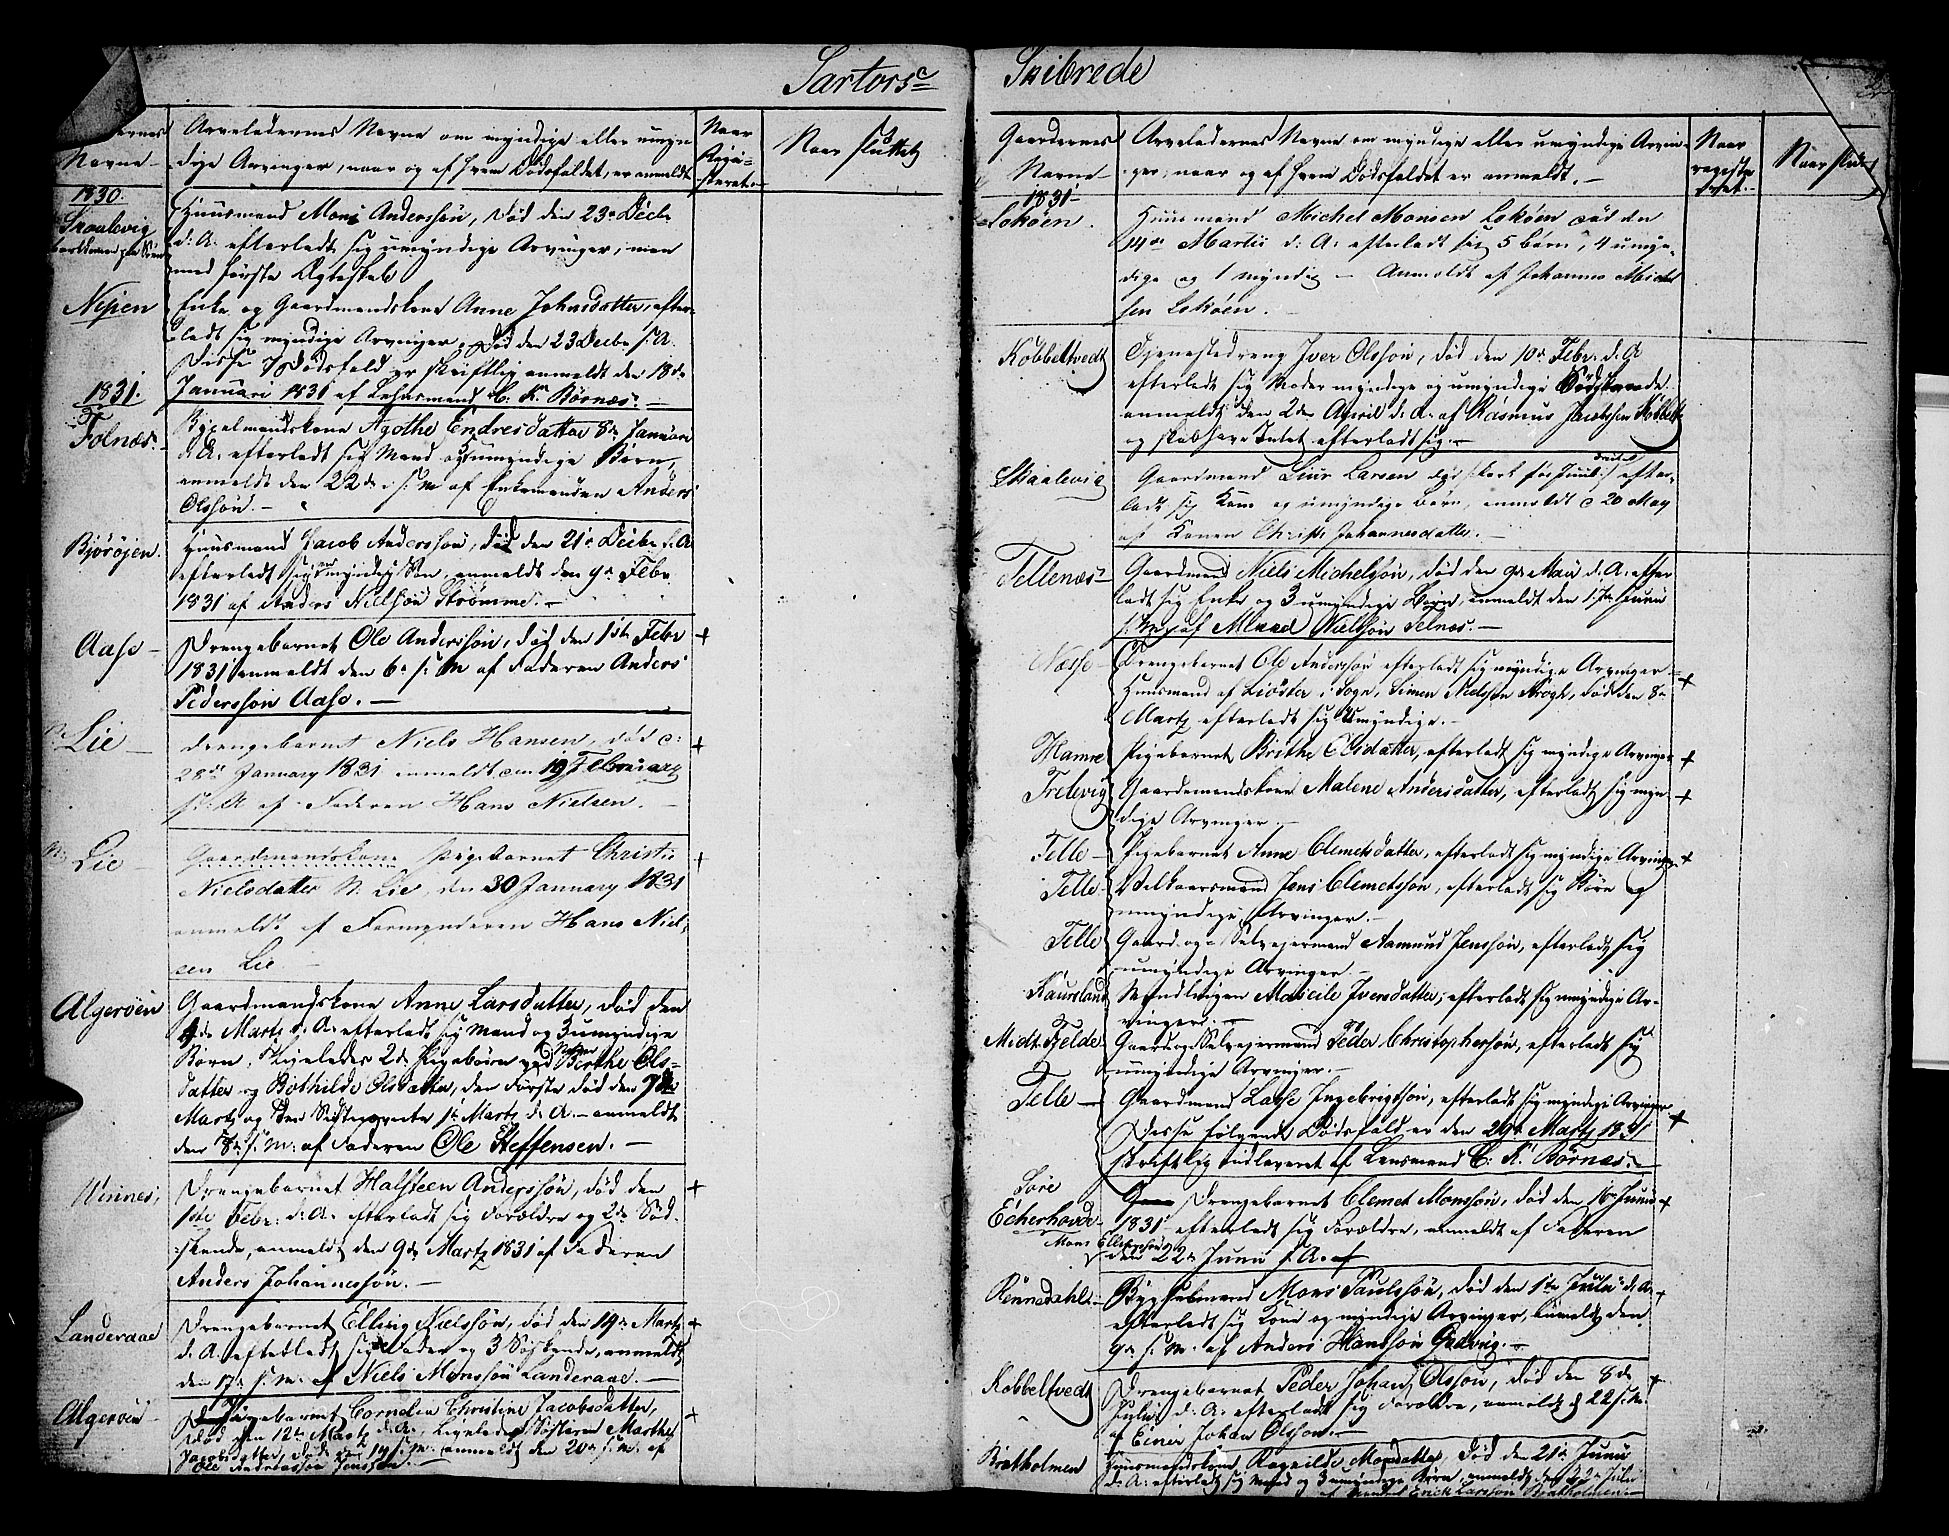 Sartorsc
Navne
Arveladernes Navne om myndige eller umyn
dige Arvinger, naar og af hvem Dødsfaldet er anmeldt
Naar
Regi-
streret.
Naar sluttet
1830.
Skaalevig
Huusmand Mons Anderssøn, død den 23de Decbr
d: A: efterladt sig umyndige Arvinger, men
med første Ægteskab
Nipen
Enke og Gaardmandskone Anne Johnsdatter, efter-
ladt sig myndige Arvinger, død den 23 Decbr s: A.
Disse 7 Dødsfald er skriftlig anmeldt den 18de
1831.
Januari 1831 af Lehnsmand C. K. Børnæs. —
Folnæs
Bygselmandskone Agathe Endresdatter 8de Januari
d: A: efterladt sig Mand og umyndige Børn,
anmeldt den 22de s: M af Enkemanden Anders
Olssøn. —
Bjørøjen.
Huusmand Jacob Anderssøn, død den 21de Decbr f: A
efterladt sig en myndig Søn, anmeldt den 9de Febr
1831 af Anders Nielssøn Strømme. —
Aase —
Drengebarnet Ole Anderssøn, død den 1ste Febr +
1831 anmeldt den 6te s: M af Faderen Anders
Pederssøn Aase. —
N. Lie —
Drengebarnet Niels Hansen, død d: +
28de January 1831 anmeldt den 19 Februar
s: A af Faderen Hans Nielsen. —
N. Lie —
Gaardmandskone Pigebarnet Christi +
Nielsdatter N. Lie, den 30 January 1831
anmeldt af Formynderen Hans Niel-
sen Lie. —
Algerøen
Gaardmandskone Anne Larsdatter, død den
4de Martz d: A: efterladt sig Mand og 3 umyndige
Børn. Ligeledes 2de Pigebørn ved Navn Birthe Ols-
datter og Bothilde Olsdatter, den Første død den 7de
Martz og den Sidstnævnte 1ste Martz d: A. — anmeldt
den 8de s: M. af Faderen Ole Steffensen. —
Winnes,
Drengebarnet Halsteen Anderssøn, død den +
1ste Febr: d: A. efterladt sig Forældre og 2de Sød-
skende, anmeldt den 9de Martz 1831 af Faderen
Anders Johannessøn. —
Landeraae
Drengebarnet Elling Nielssøn, død den 14de Martz +
d. A. efterladt sig Fader og 3 Søskende, anmeldt
den 17de s: M. af Niels Monssøn Landeraae. —
Algerøen
Pigebarnet Cornelia Christine Jacobsdatter, +
død den 12te Martz d: A., Ligeledes Søsteren Marthe
Jacobsdatter, død den 14 s: M. anmeldt den 20de s: M. af
Ole Andreassøn Jenssøn. —
Skibrede
Gaardernes
Navne
Arveladernes Navne om myndige eller umyndige Arvin-
ger, naar og af hvem Dødsfaldet er anmeldt. —
Naar
registe-
reret. —
Naar slut
1831
Lokøen.
Huusmand Michel Monsen Lokøen død den
14de Martii d: A: efterladt sig 5 børn, 4 umyn-
dige og 1 myndig — Anmeldt af Johannes Michel
sen Lokøen. —
Kobbeltvedt
Tjenestedreng Iver Olssøn, død den 10de Febr: d: A
efterladt sig Moder myndige og umyndige Sødskende.
anmeldt den 2den April d. A. af Rasmus Jacobsen Kobbelt
og skal have Intet efterladt sig. —
Skaalevig
Gaardmand Siur Larsen død kort før Juul efter-
ladt sig Kone og umyndige Børn, anmeldt d 20 May
af Konen Christi Johannesdatter. —
Tellenæs
Gaardmand Niels Michelssøn, død den 9de Maii d. A: efter
ladt sig Enke og 3 umyndige Børn, anmeldt den 17de Junii
s: M. af Nielssøn Telnæs. —
Næsse
Drengebarnet Ole Anderssøn efterladt sig myndige Arvinger — +
Huusmand af Liøster i Sogn, Simen Nielssøn Krogh, død den 8de
Martz efterladt sig Umyndige. —
Hamre
Pigebarnet Brithe Olsdatter, efterladt sig myndige Arvinger +
Trelevig
Gaardmandskone Malene Andersdatter, efterladt sig myn- +
dige Arvinger. —
Telle —
Pigebarnet Anne Clemetsdatter, efterladt sig myndige Arvinger +
Telle
Velkaarsmand Jens Clemetssøn, efterladt sig Børn og
umyndige Arvinger. —
Telle
Gaard- og Selvejermand Aamund Jenssøn, efterladt sig
umyndige Arvinger. —
Kaursland
Maricile Iversdatter, efterladt sig myndige Ar-
vinger. —
Midt-Tjelde
Gaard og Selvejermand Peder Christophersøn, efterladt sig
umyndige Arvinger. —
Telle —
Gaardmand Lasse Ingebrigtsøn, efterladt sig myndige Arvinger
Disse følgende Dødsfald er den 29de Martz 1831 +
skriftlig indleveret af Lensmand C. K. Børnæs. —
Søre
Eckerhovde
Drengebarnet Clemet Monssøn, død den 16de Junii +
1831 efterladt sig Forældre, anmeldt af Faderen
Mons Ellingssøn
den 22de Junii s: A.
Rennedahl
Bygselmand Mons Paulssøn, død den 1ste Julii d. A. +
efterladt sig Kone og myndige Arvinger, anmeldt den
9de s: M. af Anders Hanssøn Giedvig. —
Kobbeltvedt
Drengebarnet Peder Johan Olssøn, død den 8de +
Julii d: A: efterladt sig Forældre, anmeldt d 22 s: M.
af Einer Johan Olssøn. —
Bratholmen
Huusmandskone Ragnilde Monsdatter, død den 21de Junii
d: A: efterladt sig Mand og 3 umyndige Børn, anmeldt den 22de Julii
af Manden Erick Larssøn Bratholmen. —